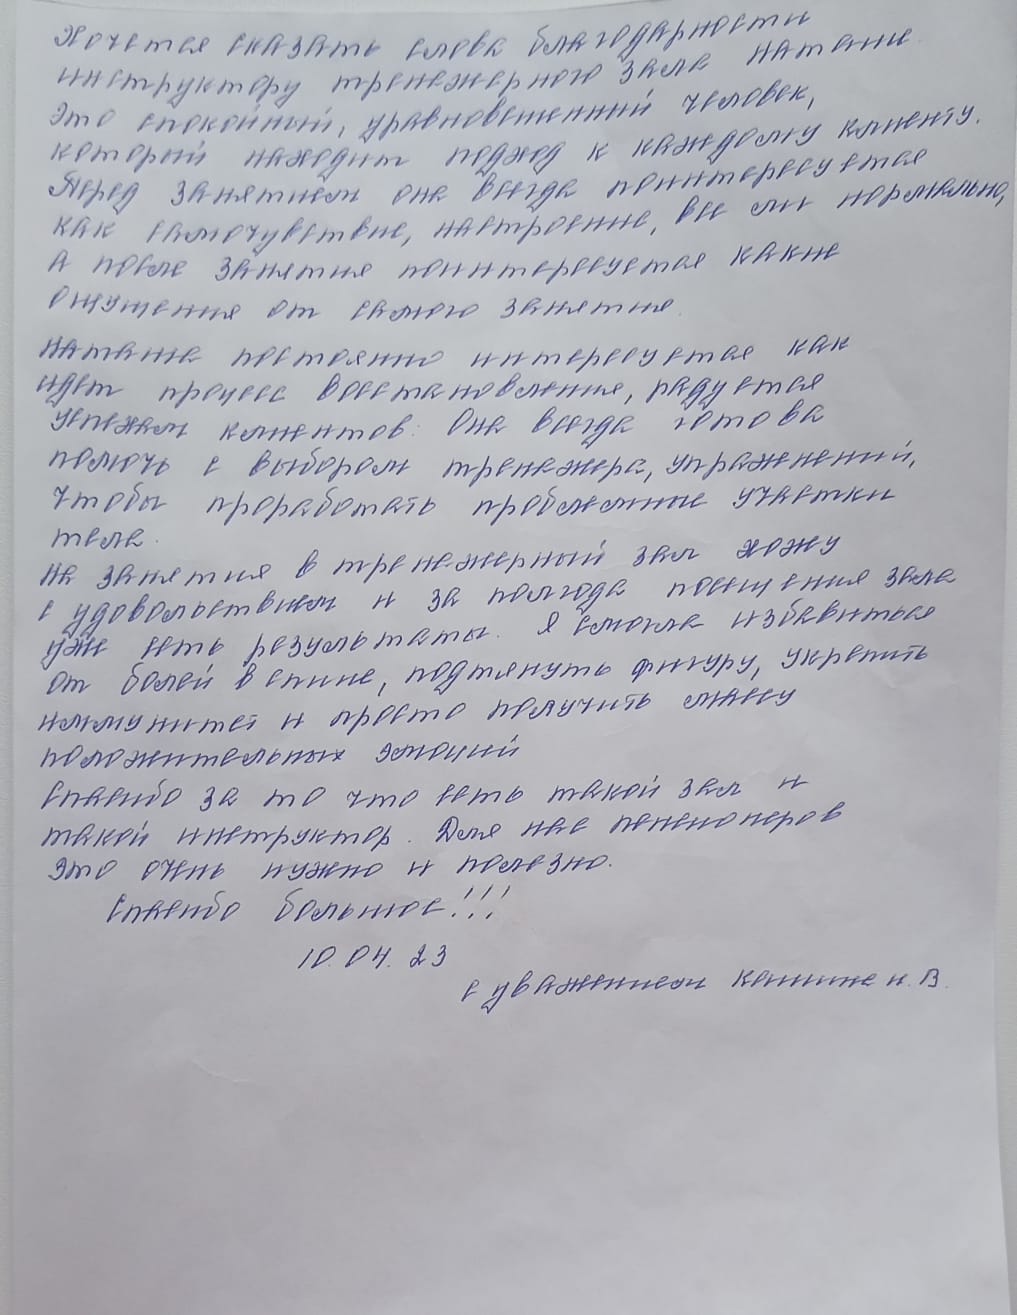 Хочется сказать слова благодарности
инструктору тренажерного зала Наташе.
Это спокойный, уравновешенный человек,
который находит подход к каждому клиенту.
Перед занятием она всегда поинтересуется
как самочувствие, настроение, все ли нормально,
а после занятия поинтересуется какие
ощущения от самого занятия.
Наташа постоянно интересуется как
идет процесс восстановления, радуется
успехам клиентов. Она всегда готова
помочь с выбором тренажера, упражнений,
чтобы проработать проблемные участки
тела.
На занятия в тренажерный зал хожу
с удовольствием и за полгода посещения зала
уже есть результаты. Я смогла избавиться
от болей в спине, подтянуть фигуру, укрепить
иммунитет и просто получить массу
положительных эмоций
Спасибо за то что есть такой зал и
такой инструктор. Для нас пенсионеров
это очень нужно и полезно.
Спасибо большое!!!
10.04.23
с уважением Н.В.